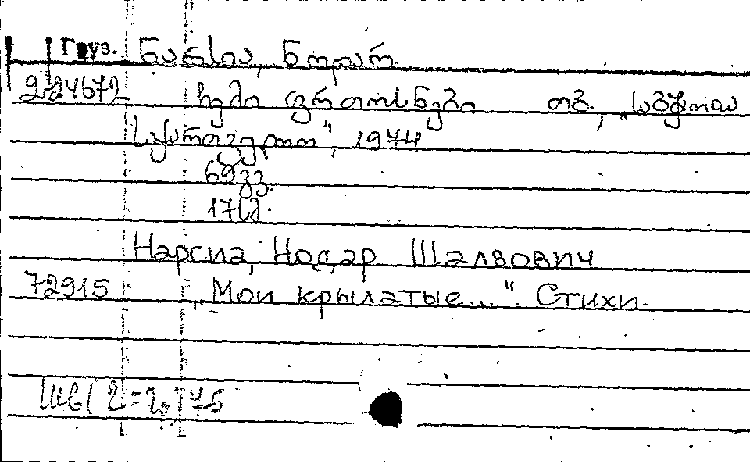 Груз. ნარსია, ნოდარ.
2.24572 ჩემი ფრთოსნები თბ., „საბჭოთა
საქართველო", 1974
69გვ.
Нарсиа, Нодар Шалвович
72915 „Мои крылатые...". Стихи.